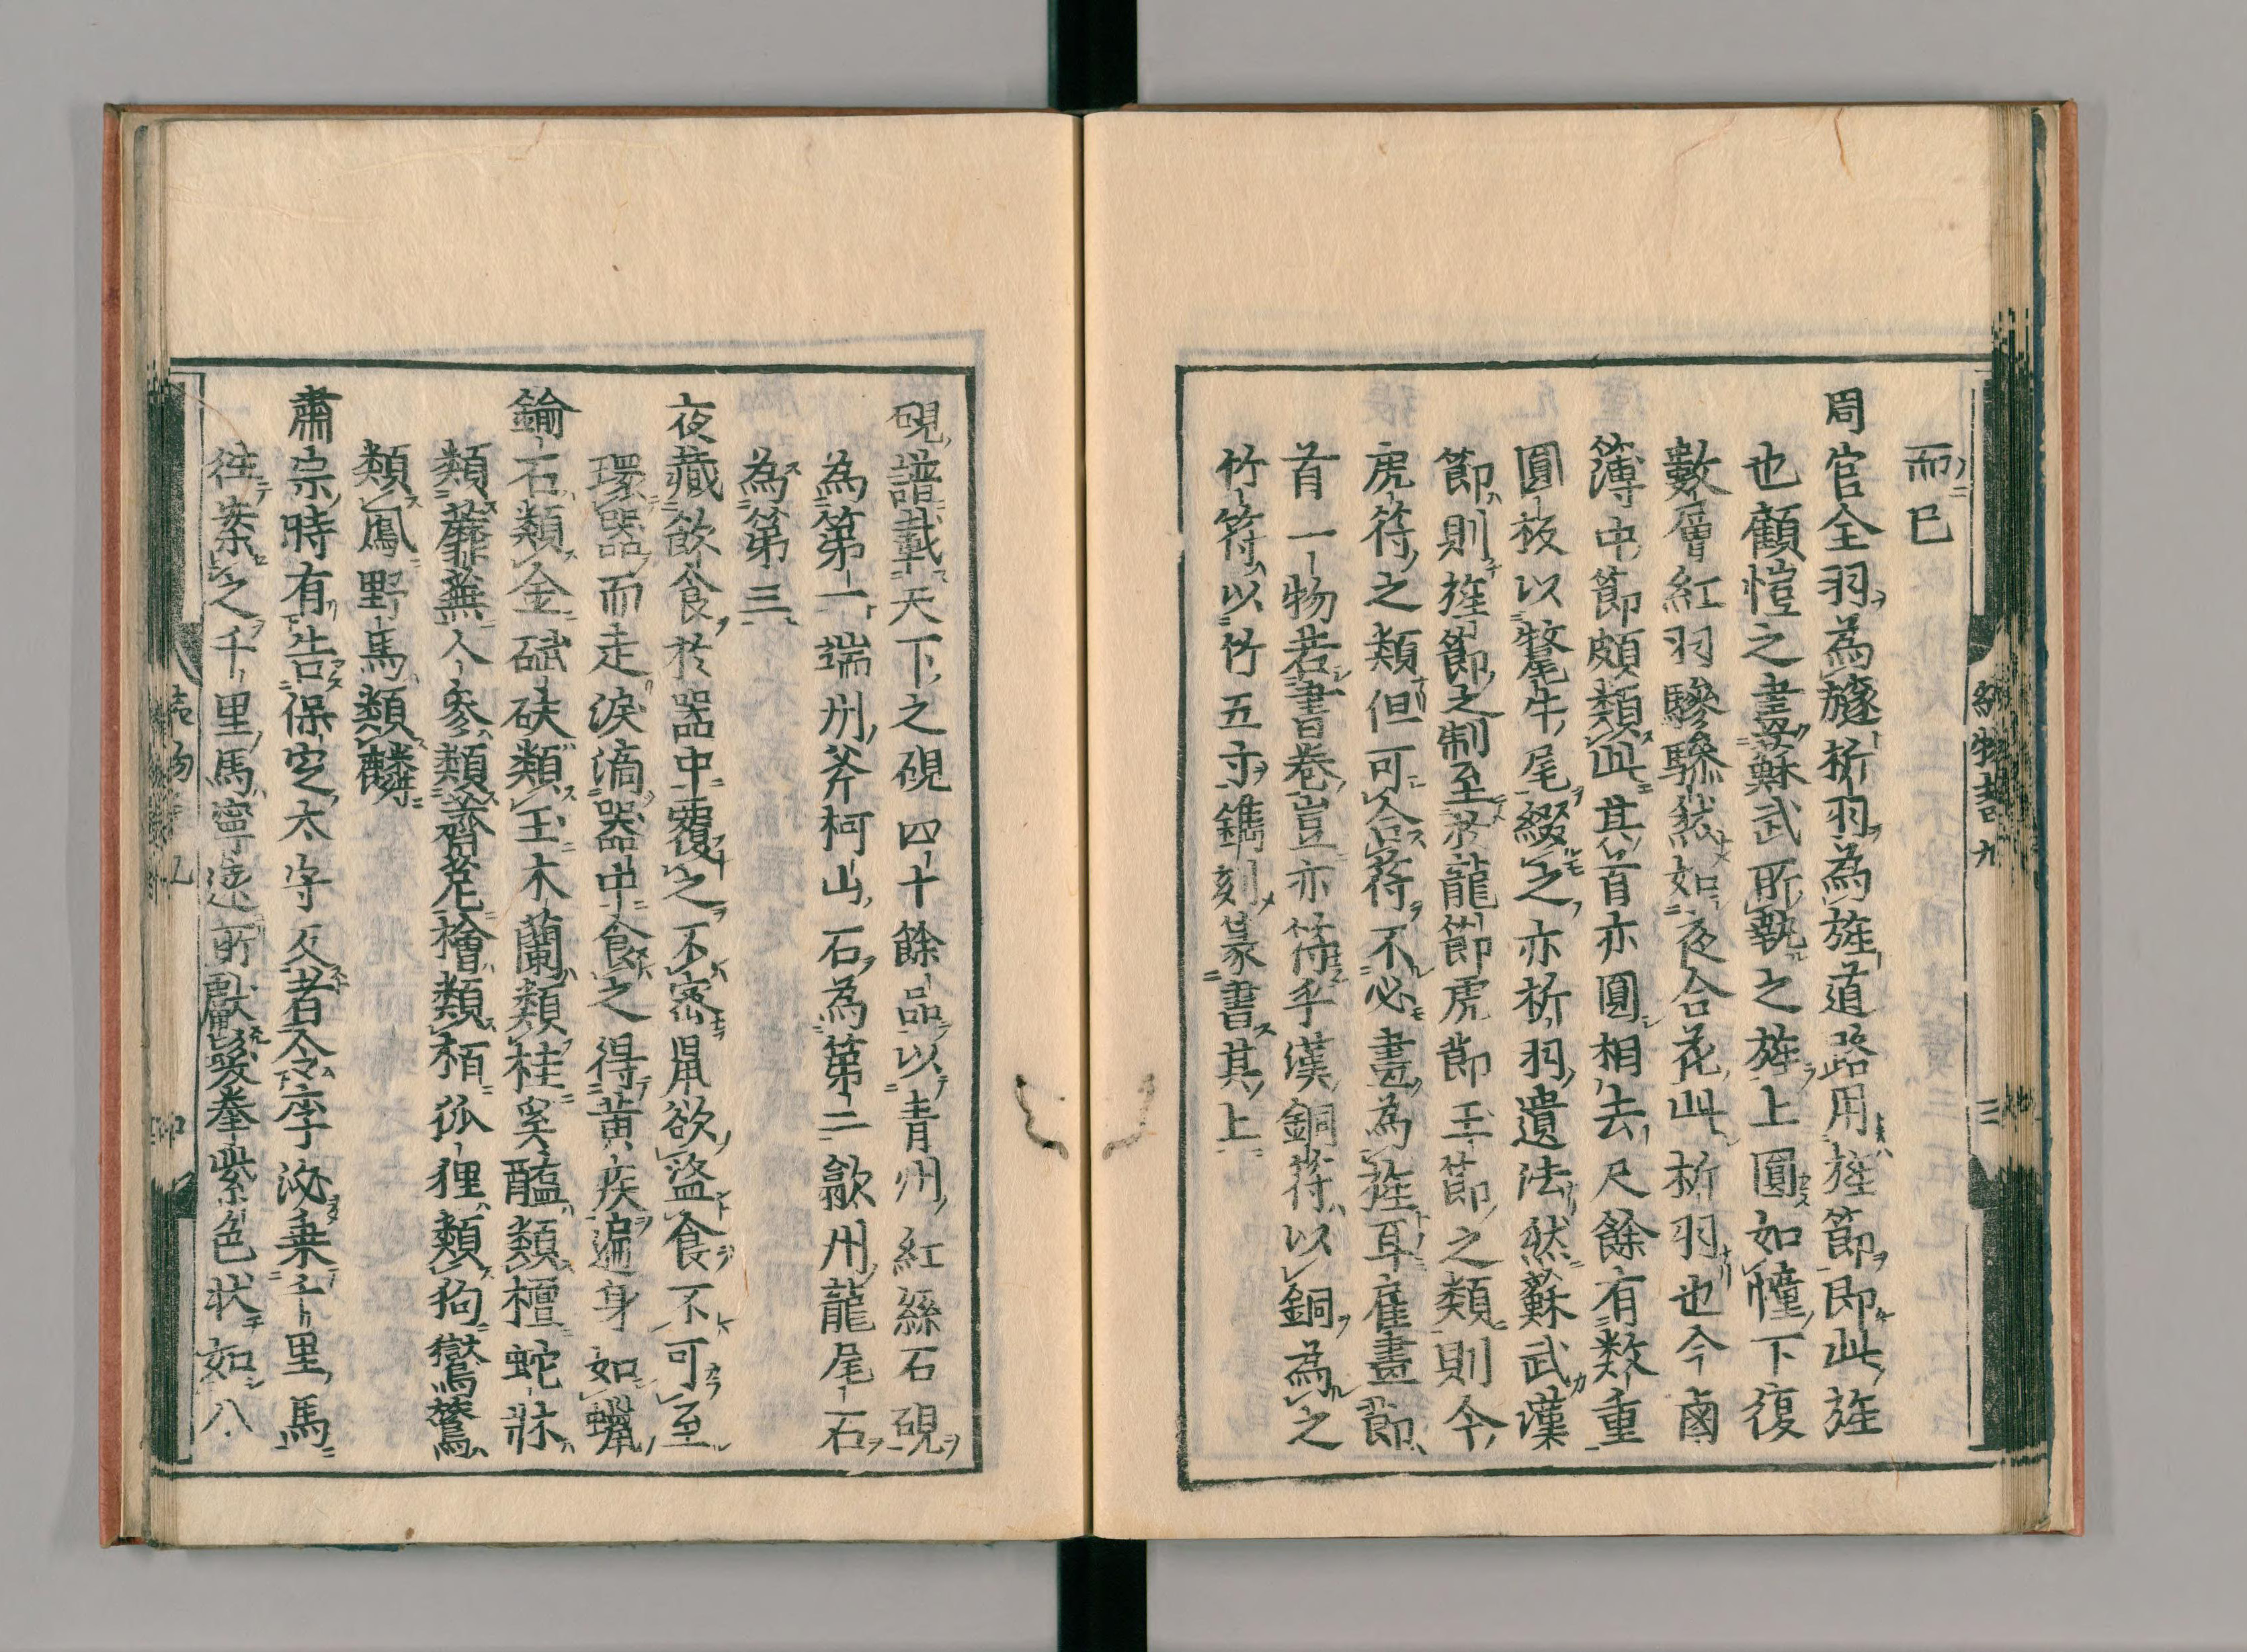 而已
周官全羽為旞析羽為旌道路用旌節即此旌
也顧愷之畫蘇武所執之旌上圓如幢下復
數層紅羽鬖鬖然如夜合花此析羽也今鹵
簿中節頗類此其首亦圓相去尺餘有数重
圓板以犛牛尾綴之亦析羽遺法然蘇武漢
節則旌節之制至於龍節虎節玉節之類則今
虎符之類但可合符不必畫為旌耳雇畫節
首一物若書卷豈亦符乎漢銅符以銅為之
竹符以竹五寸鐫刻篆書其上
硯譜載天下之硯四十餘品以青州紅絲石硯
為第一端州斧柯山石為第二歙州龍尾石
為第三
夜藏飲食於器中覆之不密鼠欲盜食不可至
環器而走淚滴器中食之得黃疾遍身如蠟
鍮石類金碔砆類玉木蘭類桂奚醞類檀蛇牀
類蘼蕪人參類薺苨檜類栢狐狸類狗鸑鷟
類鳳野馬類麟
肅宗時有告保定太守反者令李泌乘千里馬
往案之千里馬寧遠所獻鬉拳紫色状如八